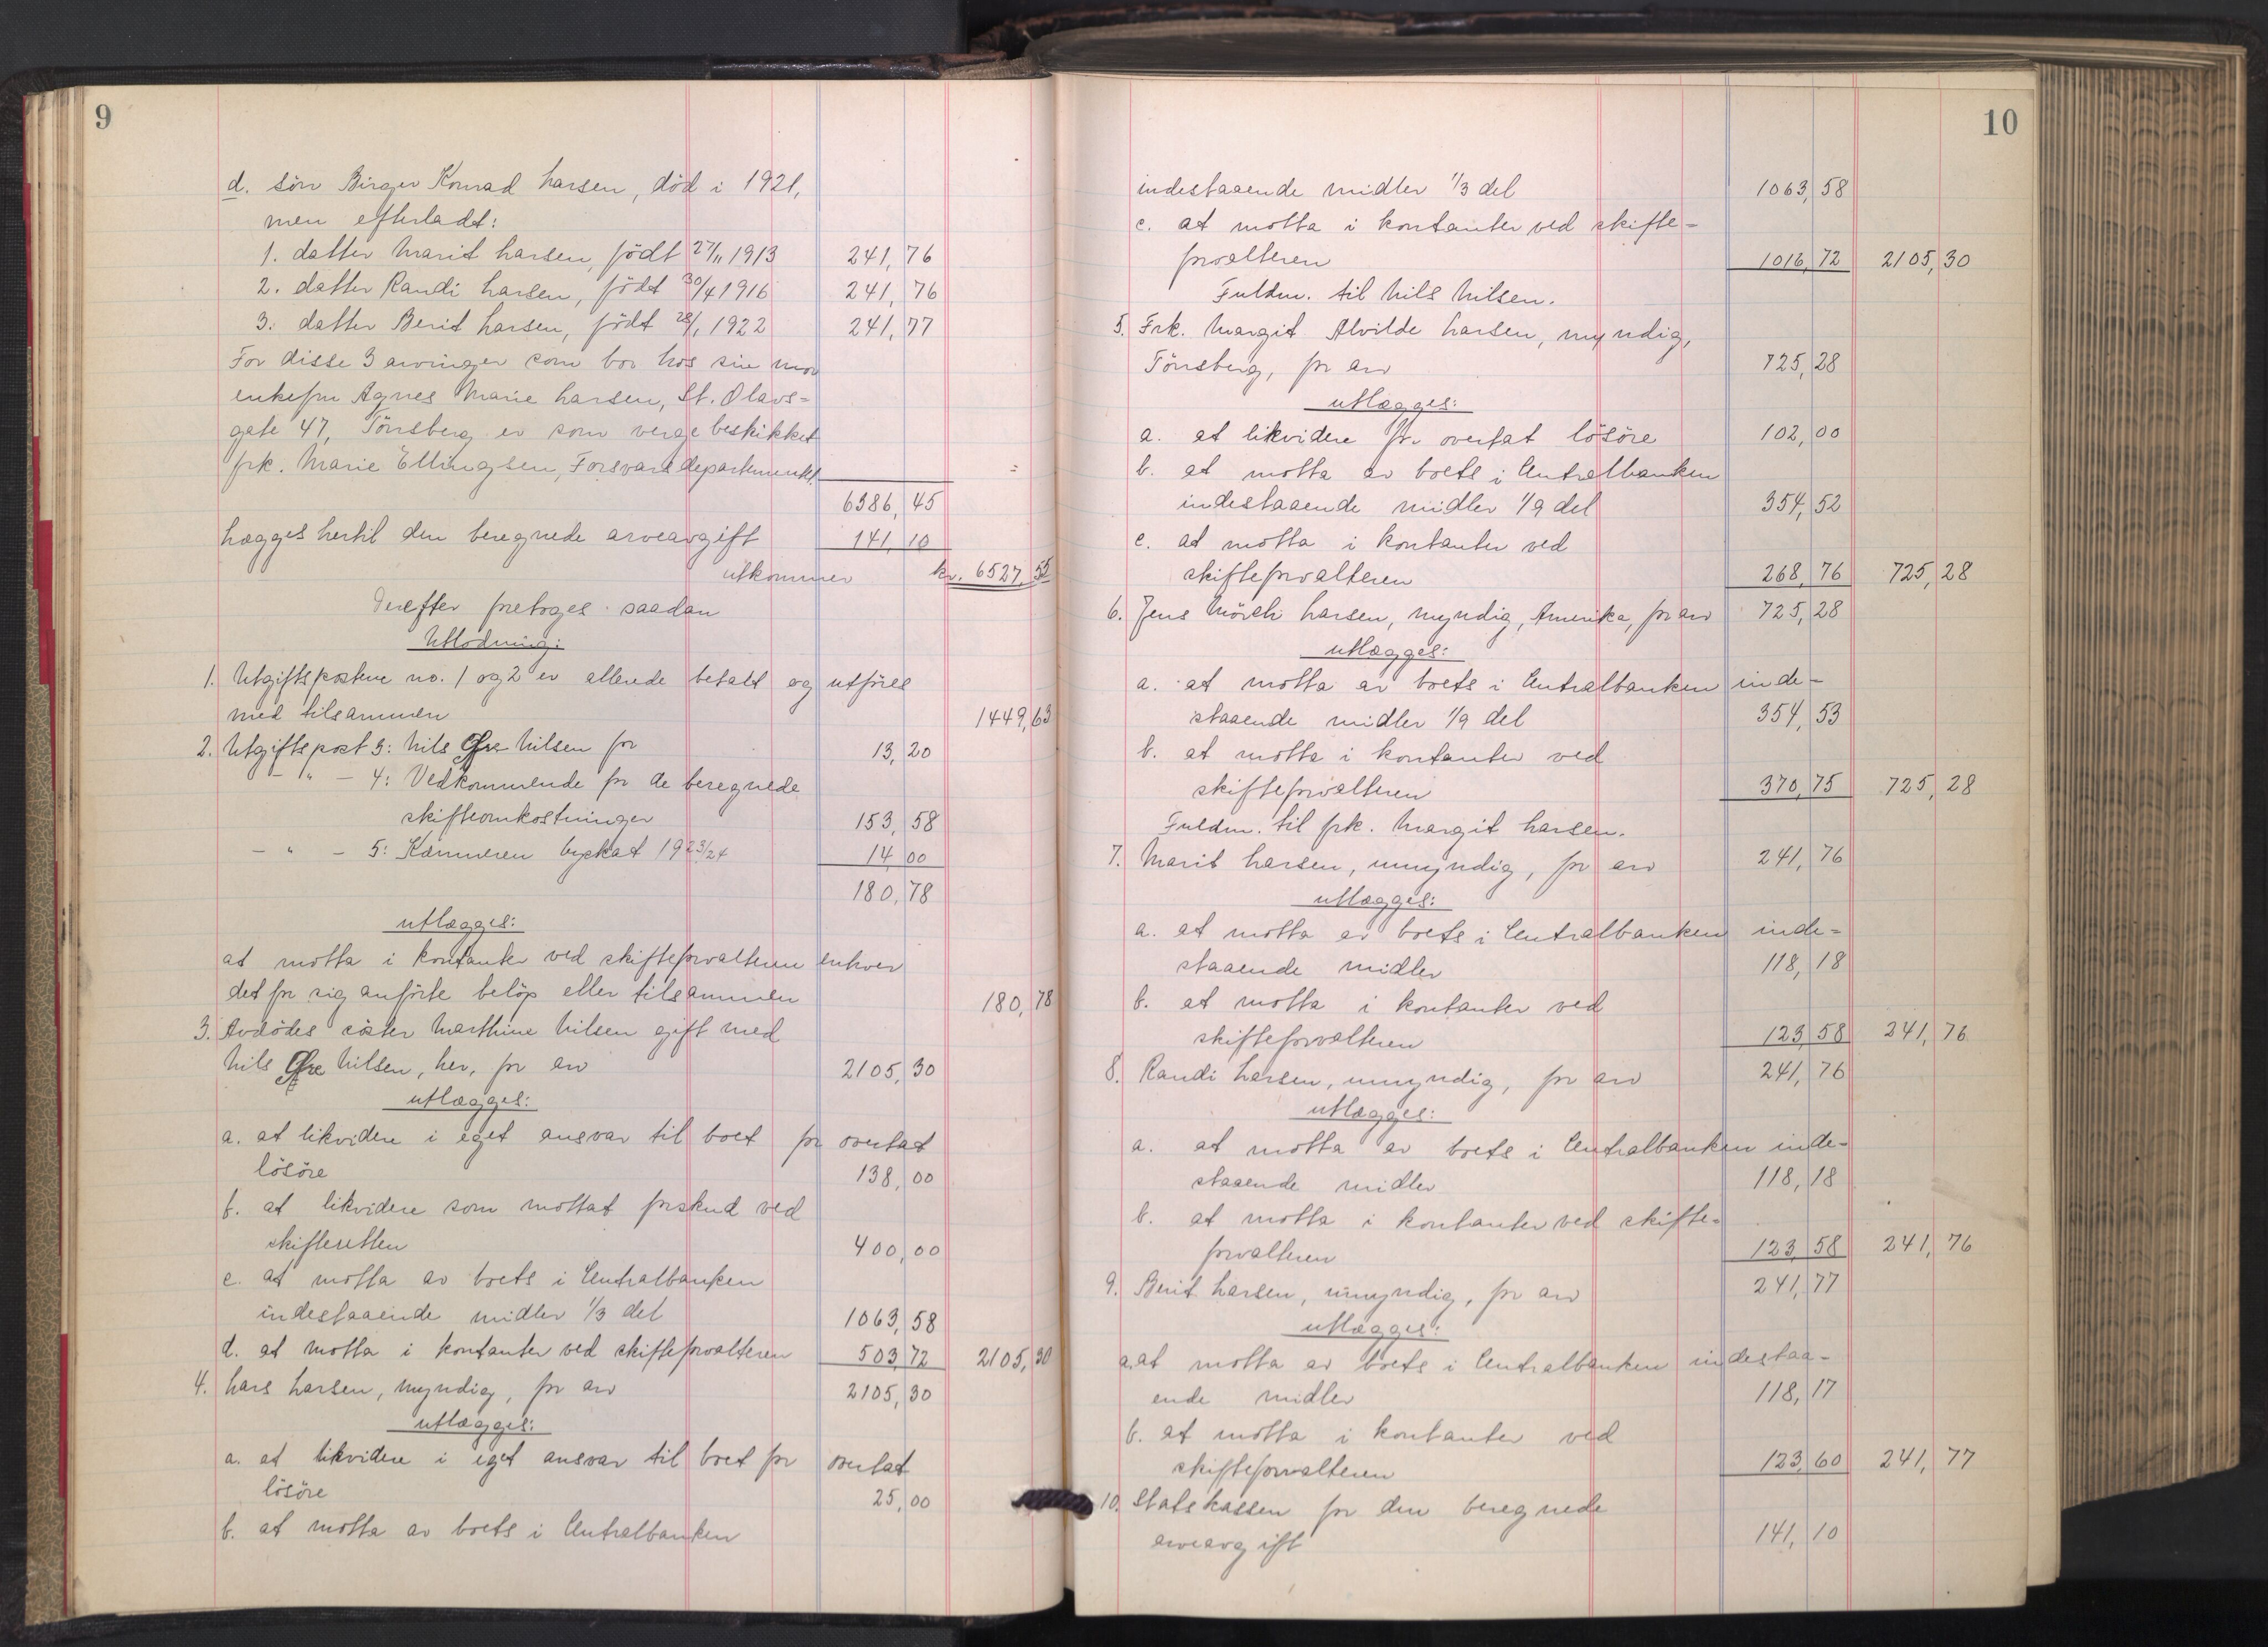 9
d. sön Birger Konrad Larsen, död i 1921,
men efterladt:
1. datter Marit Larsen, födt 27/11 1913 241,76
2. datter Randi Larsen, födt 30/4 1916 241,76
3. datter Berit Larsen, födt 28/1 1922 241,77
For disse 3 arvinger som bor hos sin mor
enkefru Agnes Marie Larsen, St. Olavs=
gate 47, Tönsberg er som verge beskikket
frk. Marie Ellingsen, Forsvarsdepartementet.
6386,45
Lægges hertil den beregnede arveavgift 141,10
utkommer kr. 6527,55
Derefter foretoges saadan
Utlodning:
1. Utgiftspostene no. 1 og 2 er allerede betalt og utföres
med tilsammen 1449,63
2. Utgiftspost 3: Nils Nilsen for 13,20
- " - 4: Vedkommende for de beregnede
skifteomkostninger 153,58
- " - 5: Kæmneren byskat 1923/24 14,00
180,78
utlægges:
at motta i kontanter ved skifteforvalteren enhver
det for sig anförte belöp eller tilsammen 180,78
3. Avdödes söster Marthine Nilsen gift med
Nils Nilsen, her, for arv 2105,30
utlægges:
a. at likvidere i eget ansvar til boet for overtat
lösöre 138,00
b. at likvidere som mottat forskud ved
skifteretten 400,00
c. at motta av boets i Centralbanken
indestaaende midler 1/3 del 1063,58
d. at motta i kontanter ved skifteforvalteren 503,72 2105,30
4. Lars Larsen, myndig, for arv 2105,30
utlægges:
a. at likvidere i eget ansvar til boet for overtat
lösöre 25,00
b. at motta av boets i Centralbanken
10
indestaaende midler 1/3 del 1063,58
c. at motta i kontanter ved skifte=
forvalteren 1016,72 2105,30
Fuldm. til Nils Nilsen.
5. Frk. Margit Alvilde Larsen, myndig,
Tönsberg, for arv 725,28
utlægges:
a. at likvidere for overtat lösöre 102,00
b. at motta av boets i Centralbanken
indestaaende midler 1/9 del 354,52
c. at motta i kontanter ved
skifteforvalteren 268,76 725,28
6. Jens Mörch Larsen, myndig, Amerika, for arv 725,28
utlægges:
a. at motta av boets i Centralbanken inde-
staaende midler 1/9 del 354,53
b. at motta i kontanter ved
skifteforvalteren 370,75 725,28
Fuldm. til frk. Margit Larsen.
7. Marit Larsen, umyndig, for arv 241,76
utlægges:
a. at motta av boets i Centralbanken inde=
staaende midler 118,18
b. at motta i kontanter ved
skifteforvalteren 123,58 241,76
8. Randi Larsen, umyndig, for arv 241,76
utlægges:
a. at motta av boets i Centralbanken inde-
staaende midler 118,18
b. at motta i kontanter ved skifte=
forvalteren 123,58 241,76
9. Berit Larsen, umyndig, for arv 241,77
utlægges:
a. at motta av boets i Centralbanken indestaa-
ende midler 118,17
b. at motta i kontanter ved
skifteforvalteren 123,60 241,77
10. Statskassen for den beregnede
arveavgift 141,10